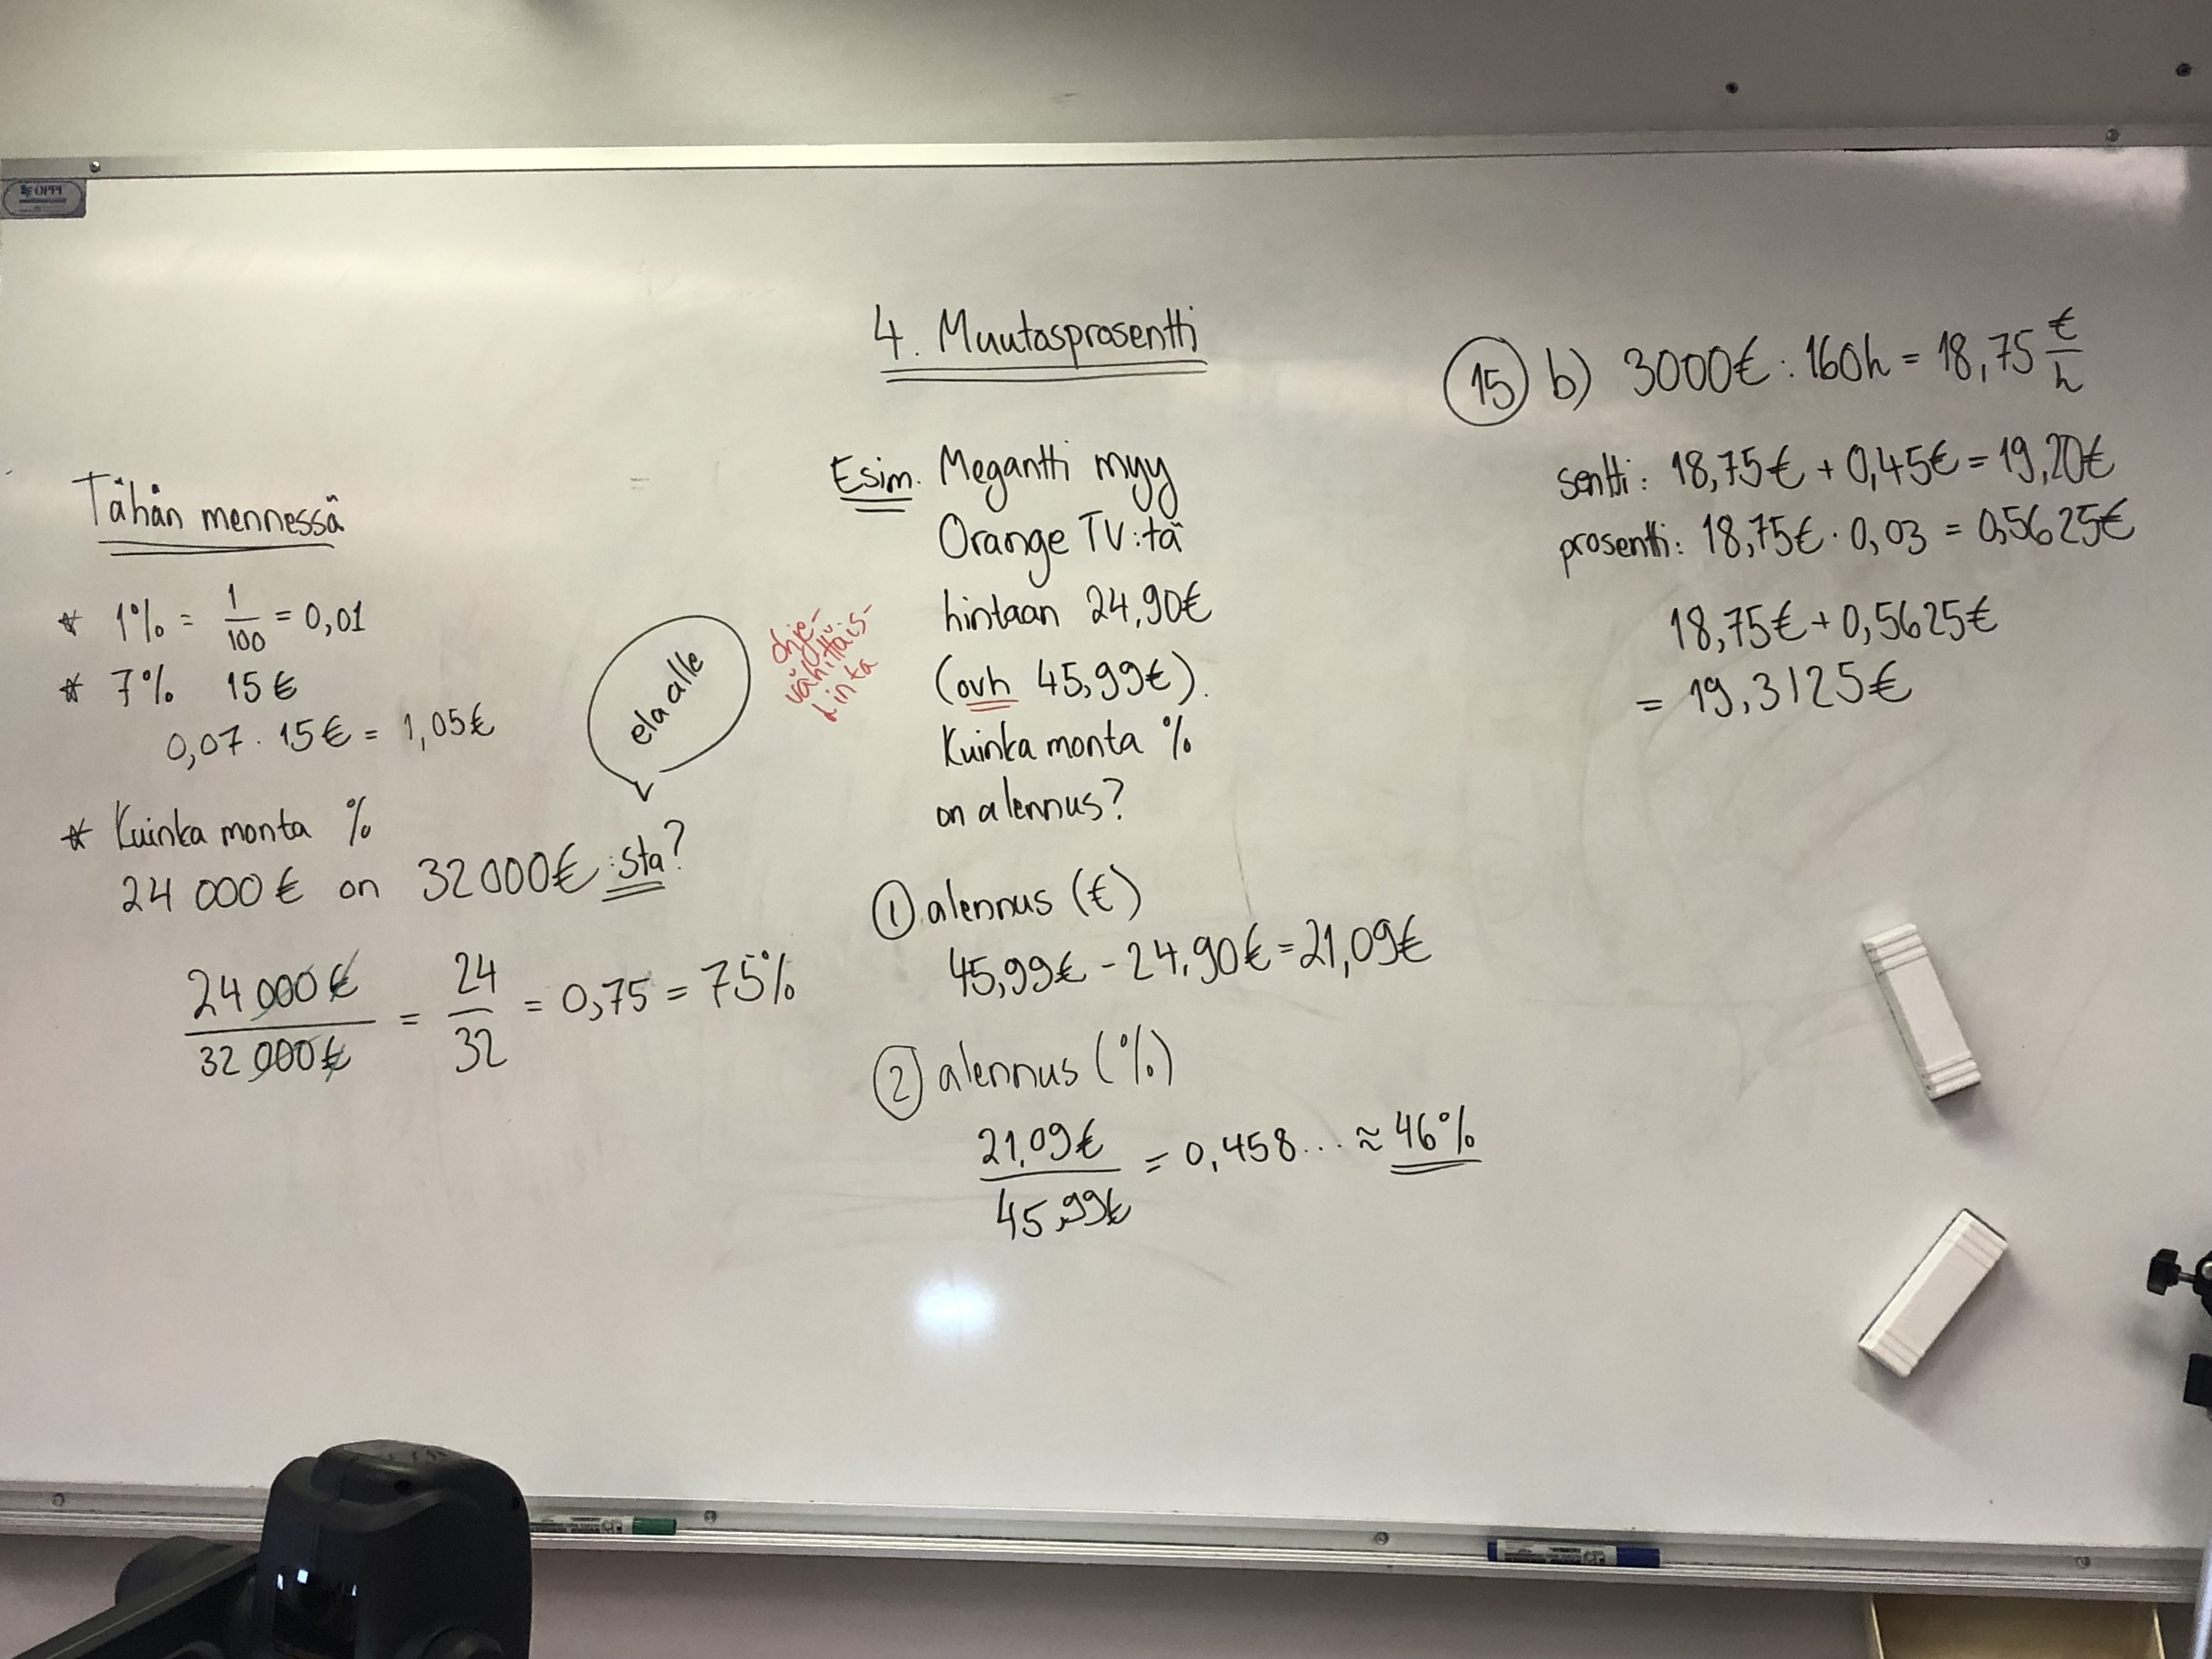 OPPI
Tähän mennessä
* 1% = 1/100 = 0,01
* 7% 15€
0,07 · 15€ = 1,05€
* Kuinka monta %
24 000€ on 32 000€:sta?
ela alle
24 000€/32 000€ = 24/32 = 0,75 = 75%
4. Muutosprosentti
Esim. Megantti myy
Orange TV:tä
hintaan 24,90€
(ovh 45,99€).
Kuinka monta %
on alennus?
ohje-
vähittäis-
hinta
① alennus (€)
45,99€ - 24,90€ = 21,09€
② alennus (%)
21,09€/45,99€ = 0,458... ≈ 46%
⑮ b) 3000€ : 160h = 18,75 €/h
sentti: 18,75€ + 0,45€ = 19,20€
prosentti: 18,75€ · 0,03 = 0,5625€
18,75€ + 0,5625€
= 19,3125€